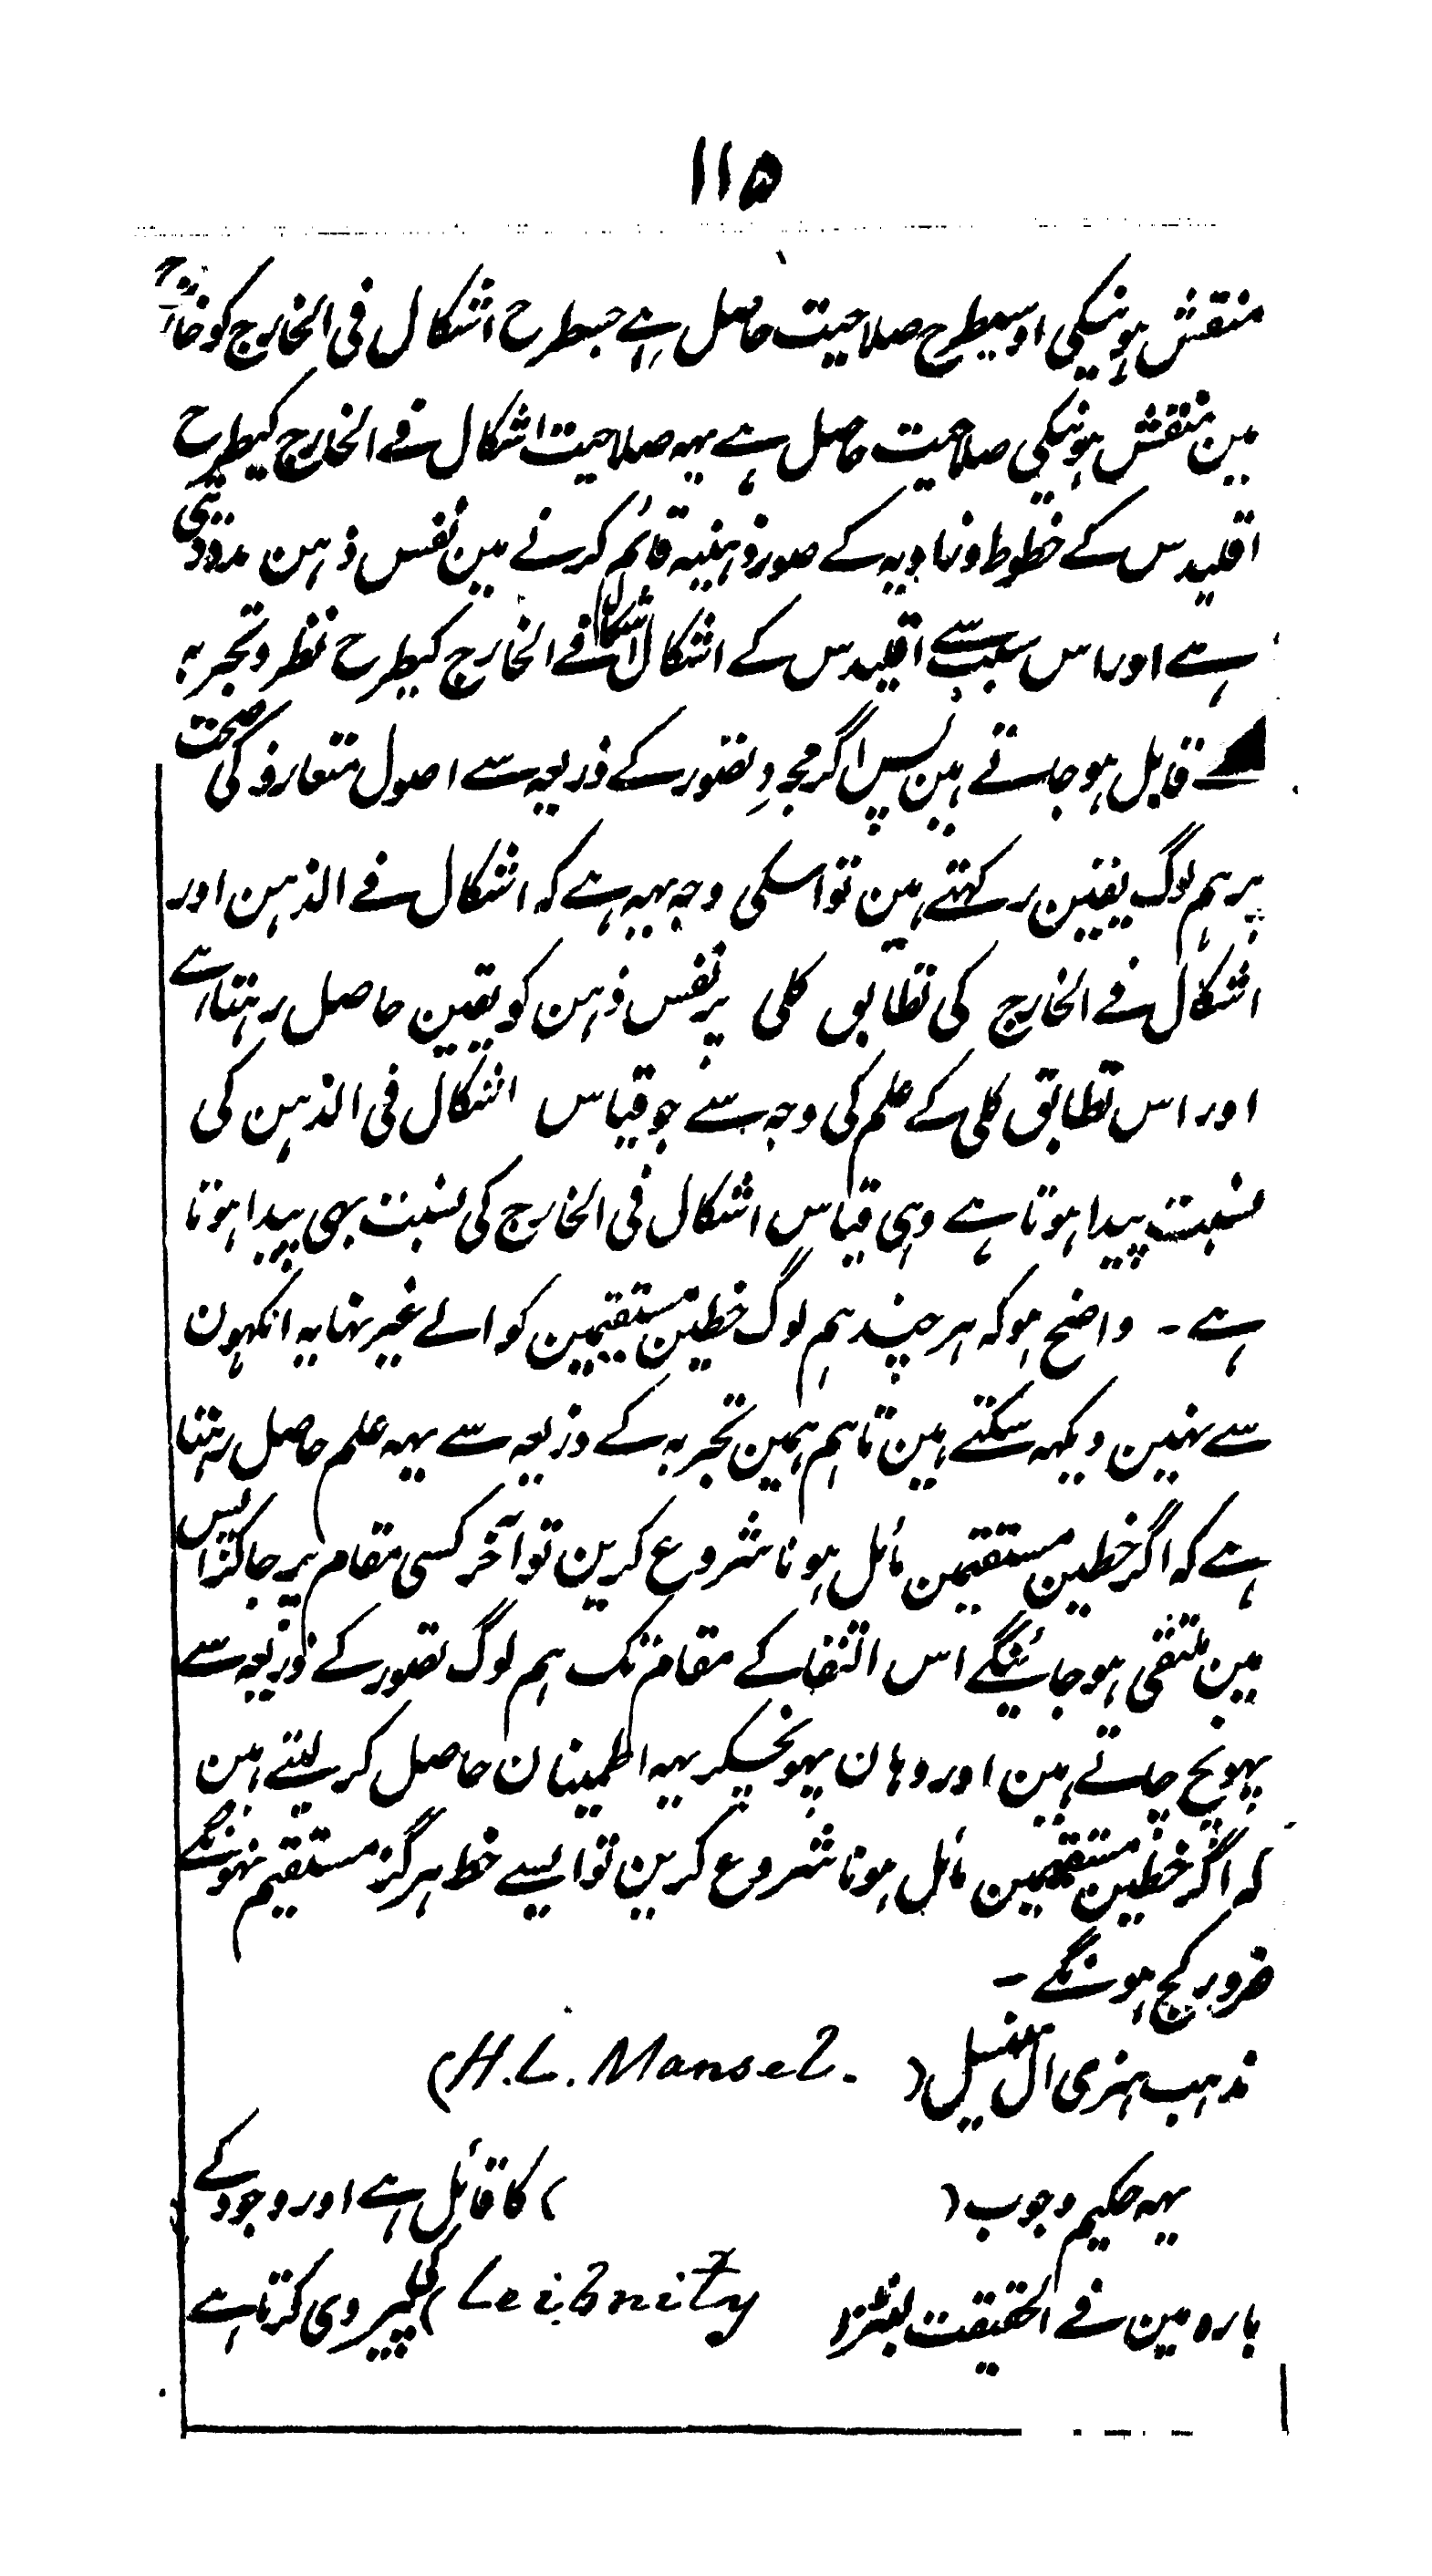 ۱۱۵
منقش ہونیکی اوسیطرح صلاحیت حاصل ہے جسطرح اشکال فی الخارج کو خارج
مین منقش ہونیکی صلاحیت حاصل ہے یہہ صلاحیت اشکال فے الخارج کیطرح
اقلیدس کے خطوط وزاویہ کے صور ذہنیہ قائم کرنے مین نفس ذہن کو مدد دیتی
ہے اور اس سبب سے اقلیدس کے اشکال اشکال فے الخارج کیطرح نظر و تجربہ
کے قابل ہو جاتے ہین پس اگر مجرد تصور کے ذریعہ سے اصول متعارفہ کی صحت
پر ہم لوگ یقین رکہتے ہین تو اسکی وجہ یہہ ہے کہ اشکال فے الذہن اور
اشکال فے الخارج کی تطابق کلی پر نفس ذہن کو یقین حاصل رہتا ہے
اور اس تطابق کلی کے علم کی وجہ سے جو قیاس اشکال فی الذہن کی
نسبت پیدا ہوتا ہے وہی قیاس اشکال فی الخارج کی نسبت بہی پیدا ہوتا
ہے ۔ واضح ہو کہ ہرچند ہم لوگ خطین مستقیمین کو الے غیر نہایہ انکہون
سے نہین دیکہہ سکتے ہین تاہم ہمین تجربہ کے ذریعہ سے یہہ علم حاصل رہتا
ہے کہ اگر خطین مستقیمین مائل ہونا شروع کرین تو آخر کسی مقام پر جا کر اپس
مین ملتقی ہو جائینگے اس التقا کے مقام تک ہم لوگ تصور کے ذریعہ سے
پہونچ جاتے ہین اور وہان پہونچکر یہہ اطمینان حاصل کر لیتے ہین
کہ اگر خطین مستقیمین مائل ہونا شروع کرین تو ایسے خط ہرگز مستقیم نہونگے
ضرور کج ہونگے ۔
مذہب ہنری ال منسیل ( H. L. Mansel. )
یہہ حکیم وجوب ( ) کا قائل ہے اور وجود کے
بارہ مین فے الحقیقت لبنٹز ( Leibnitz ) کی پیروی کرتا ہے